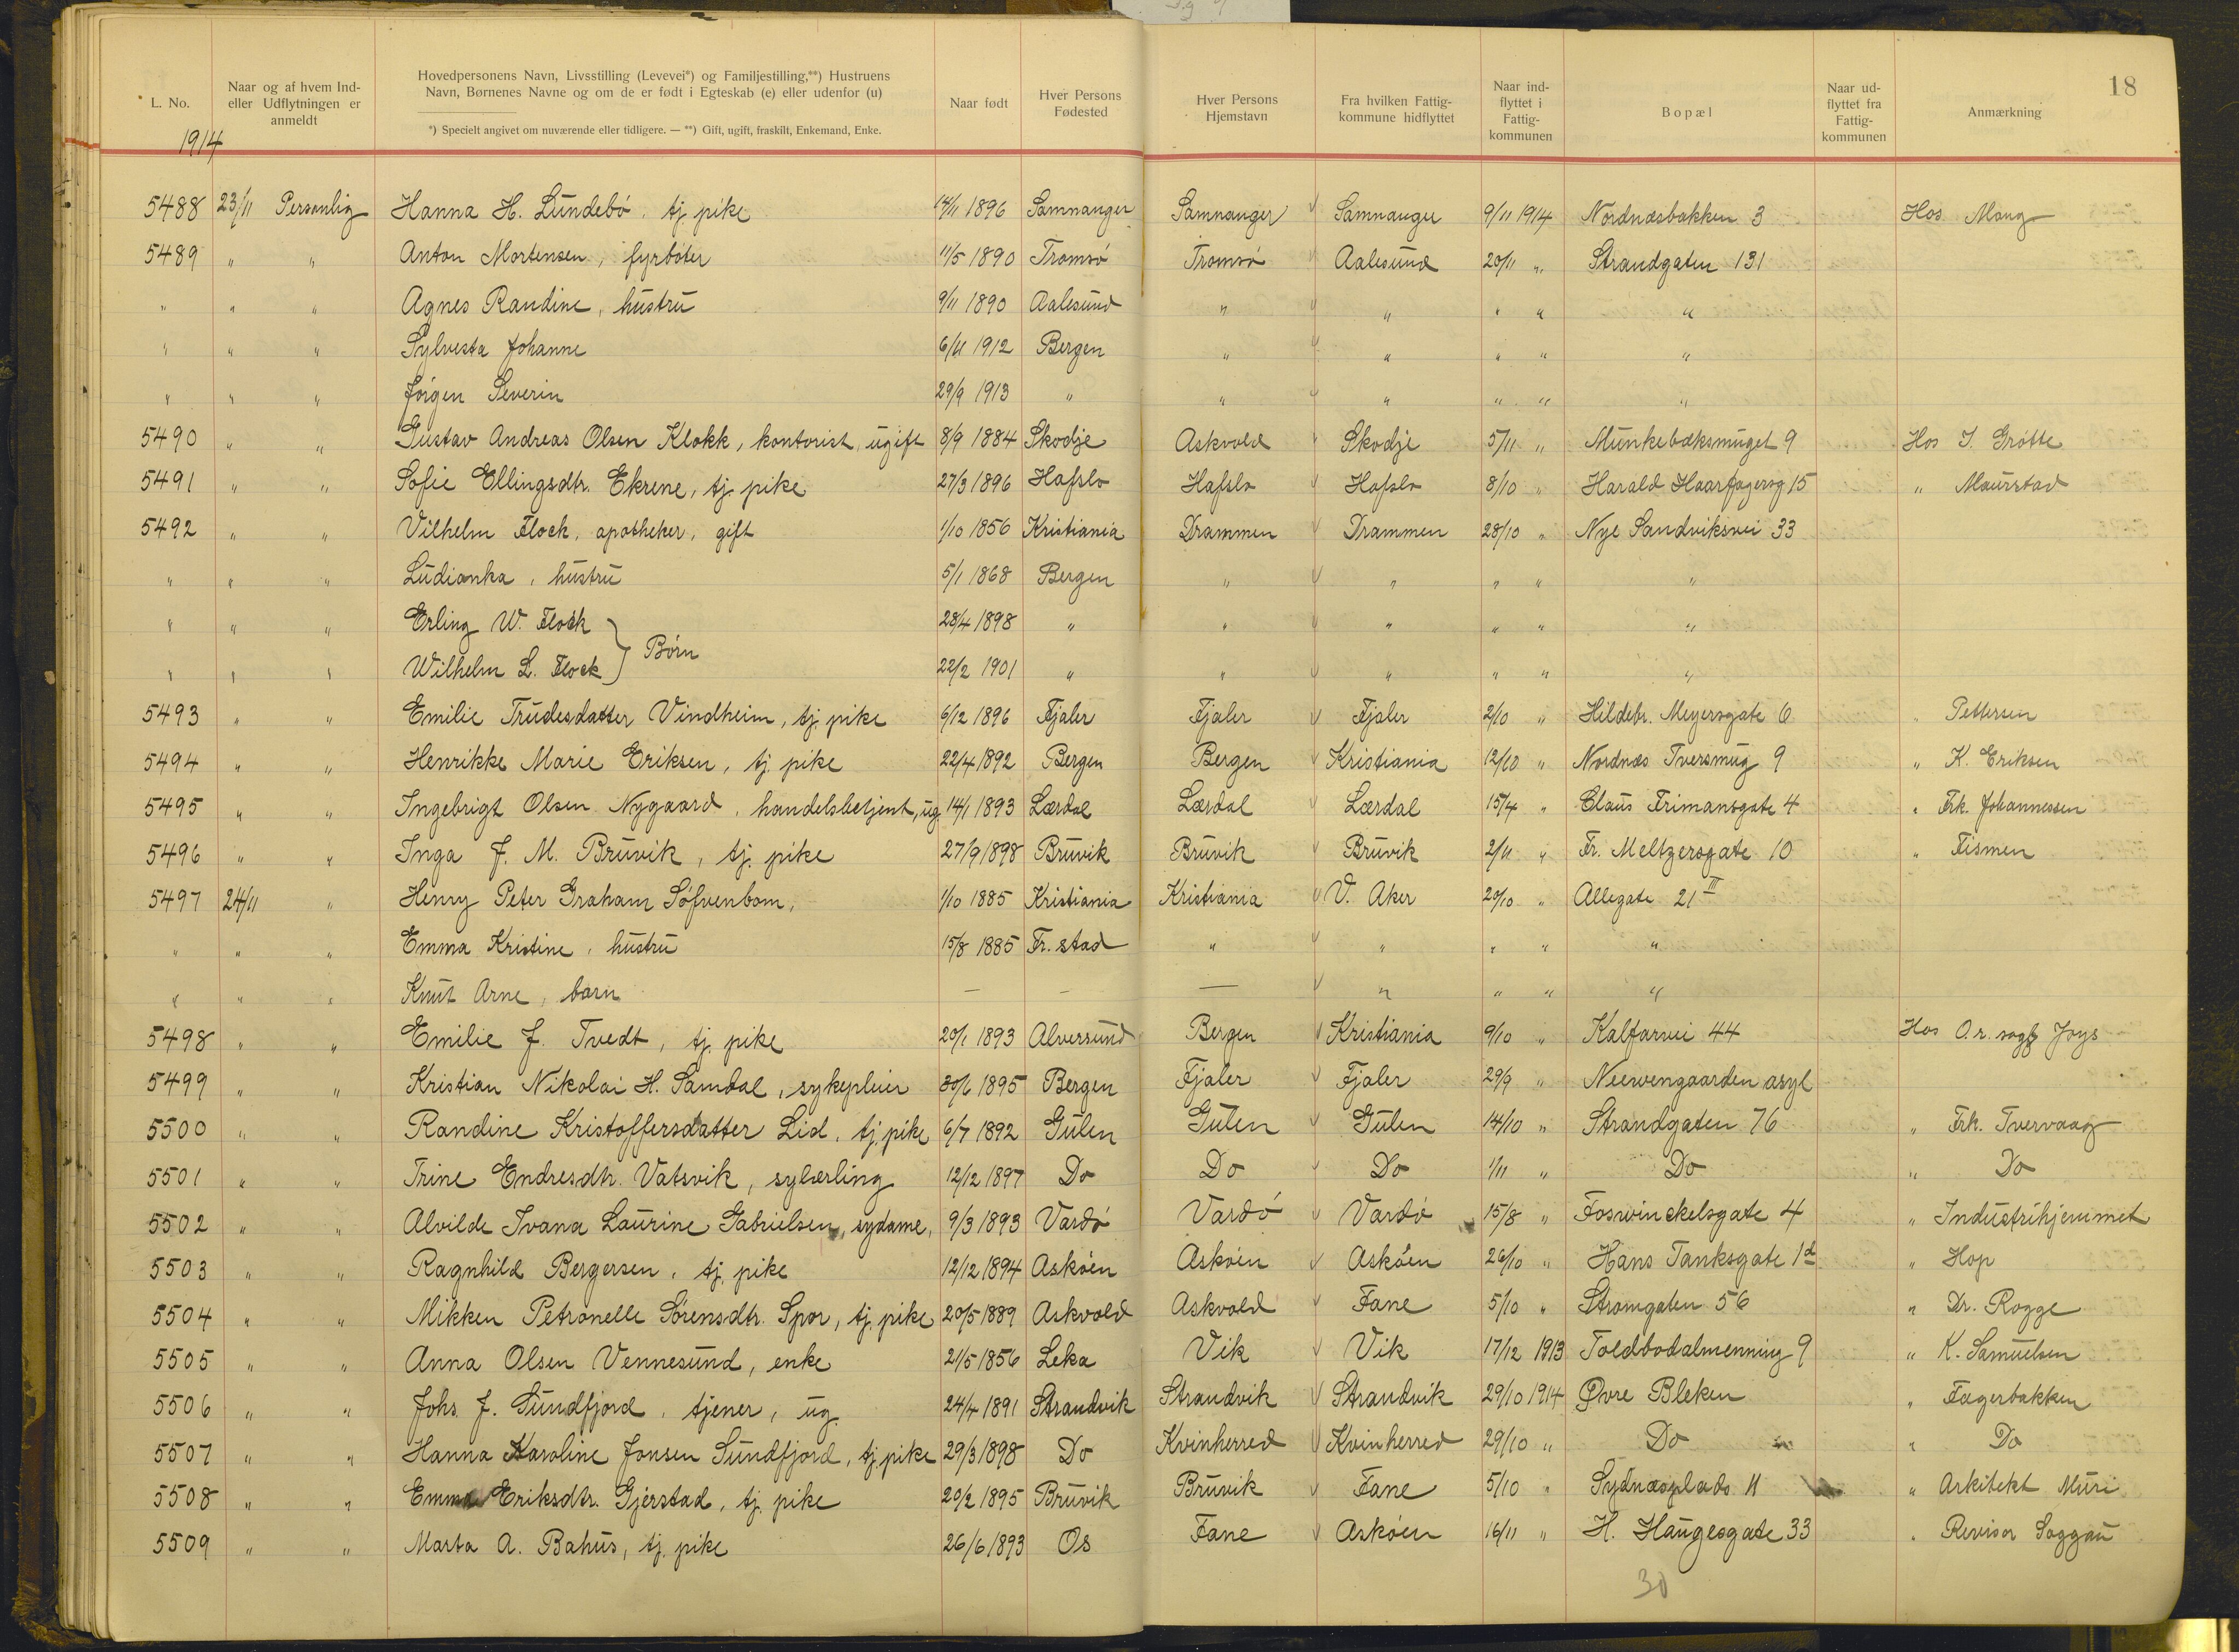 18
L. No.
Naar og af hvem Ind- eller Udflytningen er anmeldt
Hovedpersonens Navn, Livsstilling (Levevei*) og Familjestilling,**) Hustruens Navn, Børnenes Navne og om de er født i Egteskab (e) eller udenfor (u)
*) Specielt angivet om nuværende eller tidligere. — **) Gift, ugift, fraskilt, Enkemand, Enke.
Naar født
Hver Persons Fødested
Hver Persons Hjemstavn
Fra hvilken Fattigkommune hidflyttet
Naar indflyttet i Fattigkommunen
Bopæl
Naar udflyttet fra Fattigkommunen
Anmærkning
1914
5488 23/11 Personlig Hanna H. Lundebö, tj. pike 14/11 1896 Samnanger Samnanger Samnanger 9/11 1914 Nordnæsbakken 3 Hos Mang
5489 " " Anton Mortensen, fyrböter 11/5 1890 Tromsö Tromsö Aalesund 20/11 " Strandgaten 131
" " " Agnes Randine, hustru 9/11 1890 Aalesund " " " " "
" " " Sylvesta Johanne 6/11 1912 Bergen " " " " "
" " " Jörgen Severin 29/9 1913 " " " " " "
5490 " " Gustav Andreas Olsen Klokk, kontorist, ugift 8/9 1884 Skodje Askvold Skodje 5/11 " Munkebæksmuget 9 Hos I. Grötte
5491 " " Sofie Ellingsdtr. Ekrene, tj. pike 27/3 1896 Hafslo Hafslo Hafslo 8/10 " Harald Haarfagersg 15 " Maurstad
5492 " " Vilhelm Flock, apotheker, gift 1/10 1856 Kristiania Drammen Drammen 28/10 " Nye Sandviksvei 33
" " " Ludianka, hustru 5/1 1868 Bergen " " " " "
" " " Erling W. Flock } Börn 28/4 1898 " " " " " "
" " " Wilhelm L. Flock } 22/2 1901 " " " " " "
5493 " " Emilie Trudesdatter Vindheim, tj. pike 6/12 1896 Fjaler Fjaler Fjaler 2/10 " Hildebr. Meyersgate 6 " Pettersen
5494 " " Henrikke Marie Eriksen, tj. pike 22/4 1892 Bergen Bergen Kristiania 12/10 " Nordnæs Tversmug 9 " K. Eriksen
5495 " " Ingebrigt Olsen Nygaard, handelsbetjent, ug. 14/1 1893 Lærdal Lærdal Lærdal 15/4 " Claus Frimansgate 4 " Frk. Johannessen
5496 " " Inga J. M. Bruvik, tj. pike 27/9 1898 Bruvik Bruvik Bruvik 2/11 " Fr. Meltzersgate 10 " Fismen
5497 24/11 " Henry Peter Graham Söfvenbom, 1/10 1885 Kristiania Kristiania V. Aker 20/10 " Allegate 21 III
" " " Emma Kristine, hustru 15/8 1885 Fr. stad " " " " "
" " " Knut Arne, barn — — — " " " "
5498 " " Emilie J. Tvedt, tj. pike 20/1 1893 Alversund Bergen Kristiania 9/10 " Kalfarvei 44 Hos O.r. sagf Joys
5499 " " Kristian Nikolai H. Samdal, sykepleier 30/6 1895 Bergen Fjaler Fjaler 29/9 " Neevengaarden asyl
5500 " " Randine Kristoffersdatter Lid, tj. pike 6/7 1892 Gulen Gulen Gulen 14/10 " Strandgaten 76 " Frk. Tvervaag
5501 " " Trine Endresdtr. Vatsvik, sylærling 12/12 1897 Do Do Do 1/11 " Do " Do
5502 " " Alvilde Ivana Laurine Gabrielsen, sydame, 9/3 1893 Vardö Vardö Vardö 15/8 " Foswinckelsgate 4 " Industrihjemmet
5503 " " Ragnhild Bergersen, tj. pike 12/12 1894 Asköen Asköen Asköen 26/10 " Hans Tanksgate 1d " Hop
5504 " " Mikken Petronelle Sörensdtr. Spor, tj. pike 20/5 1889 Askvold Askvold Fane 5/10 " Strömgaten 56 " Dr. Rogge
5505 " " Anna Olsen Vennesund, enke 21/5 1856 Leka Vik Vik 17/12 1913 Toldbodalmenning 9 " K. Samuelsen
5506 " " Johs. J. Sundfjord, tjener, ug. 24/4 1891 Strandvik Strandvik Strandvik 29/10 1914 Øvre Bleken " Fagerbakken
5507 " " Hanna Karoline Jonsen Sundfjord, tj. pike 29/3 1898 Do Kvinherred Kvinherred 29/10 " Do " Do
5508 " " Emma Eriksdtr. Gjerstad, tj. pike 20/2 1895 Bruvik Bruvik Fane 5/10 " Sydnæsplads 11 " Arkitekt Muri
5509 " " Marta A. Bahus, tj. pike 26/6 1893 Os Fane Asköen 16/11 " H. Haugesgate 33 " Revisor Saggau
30